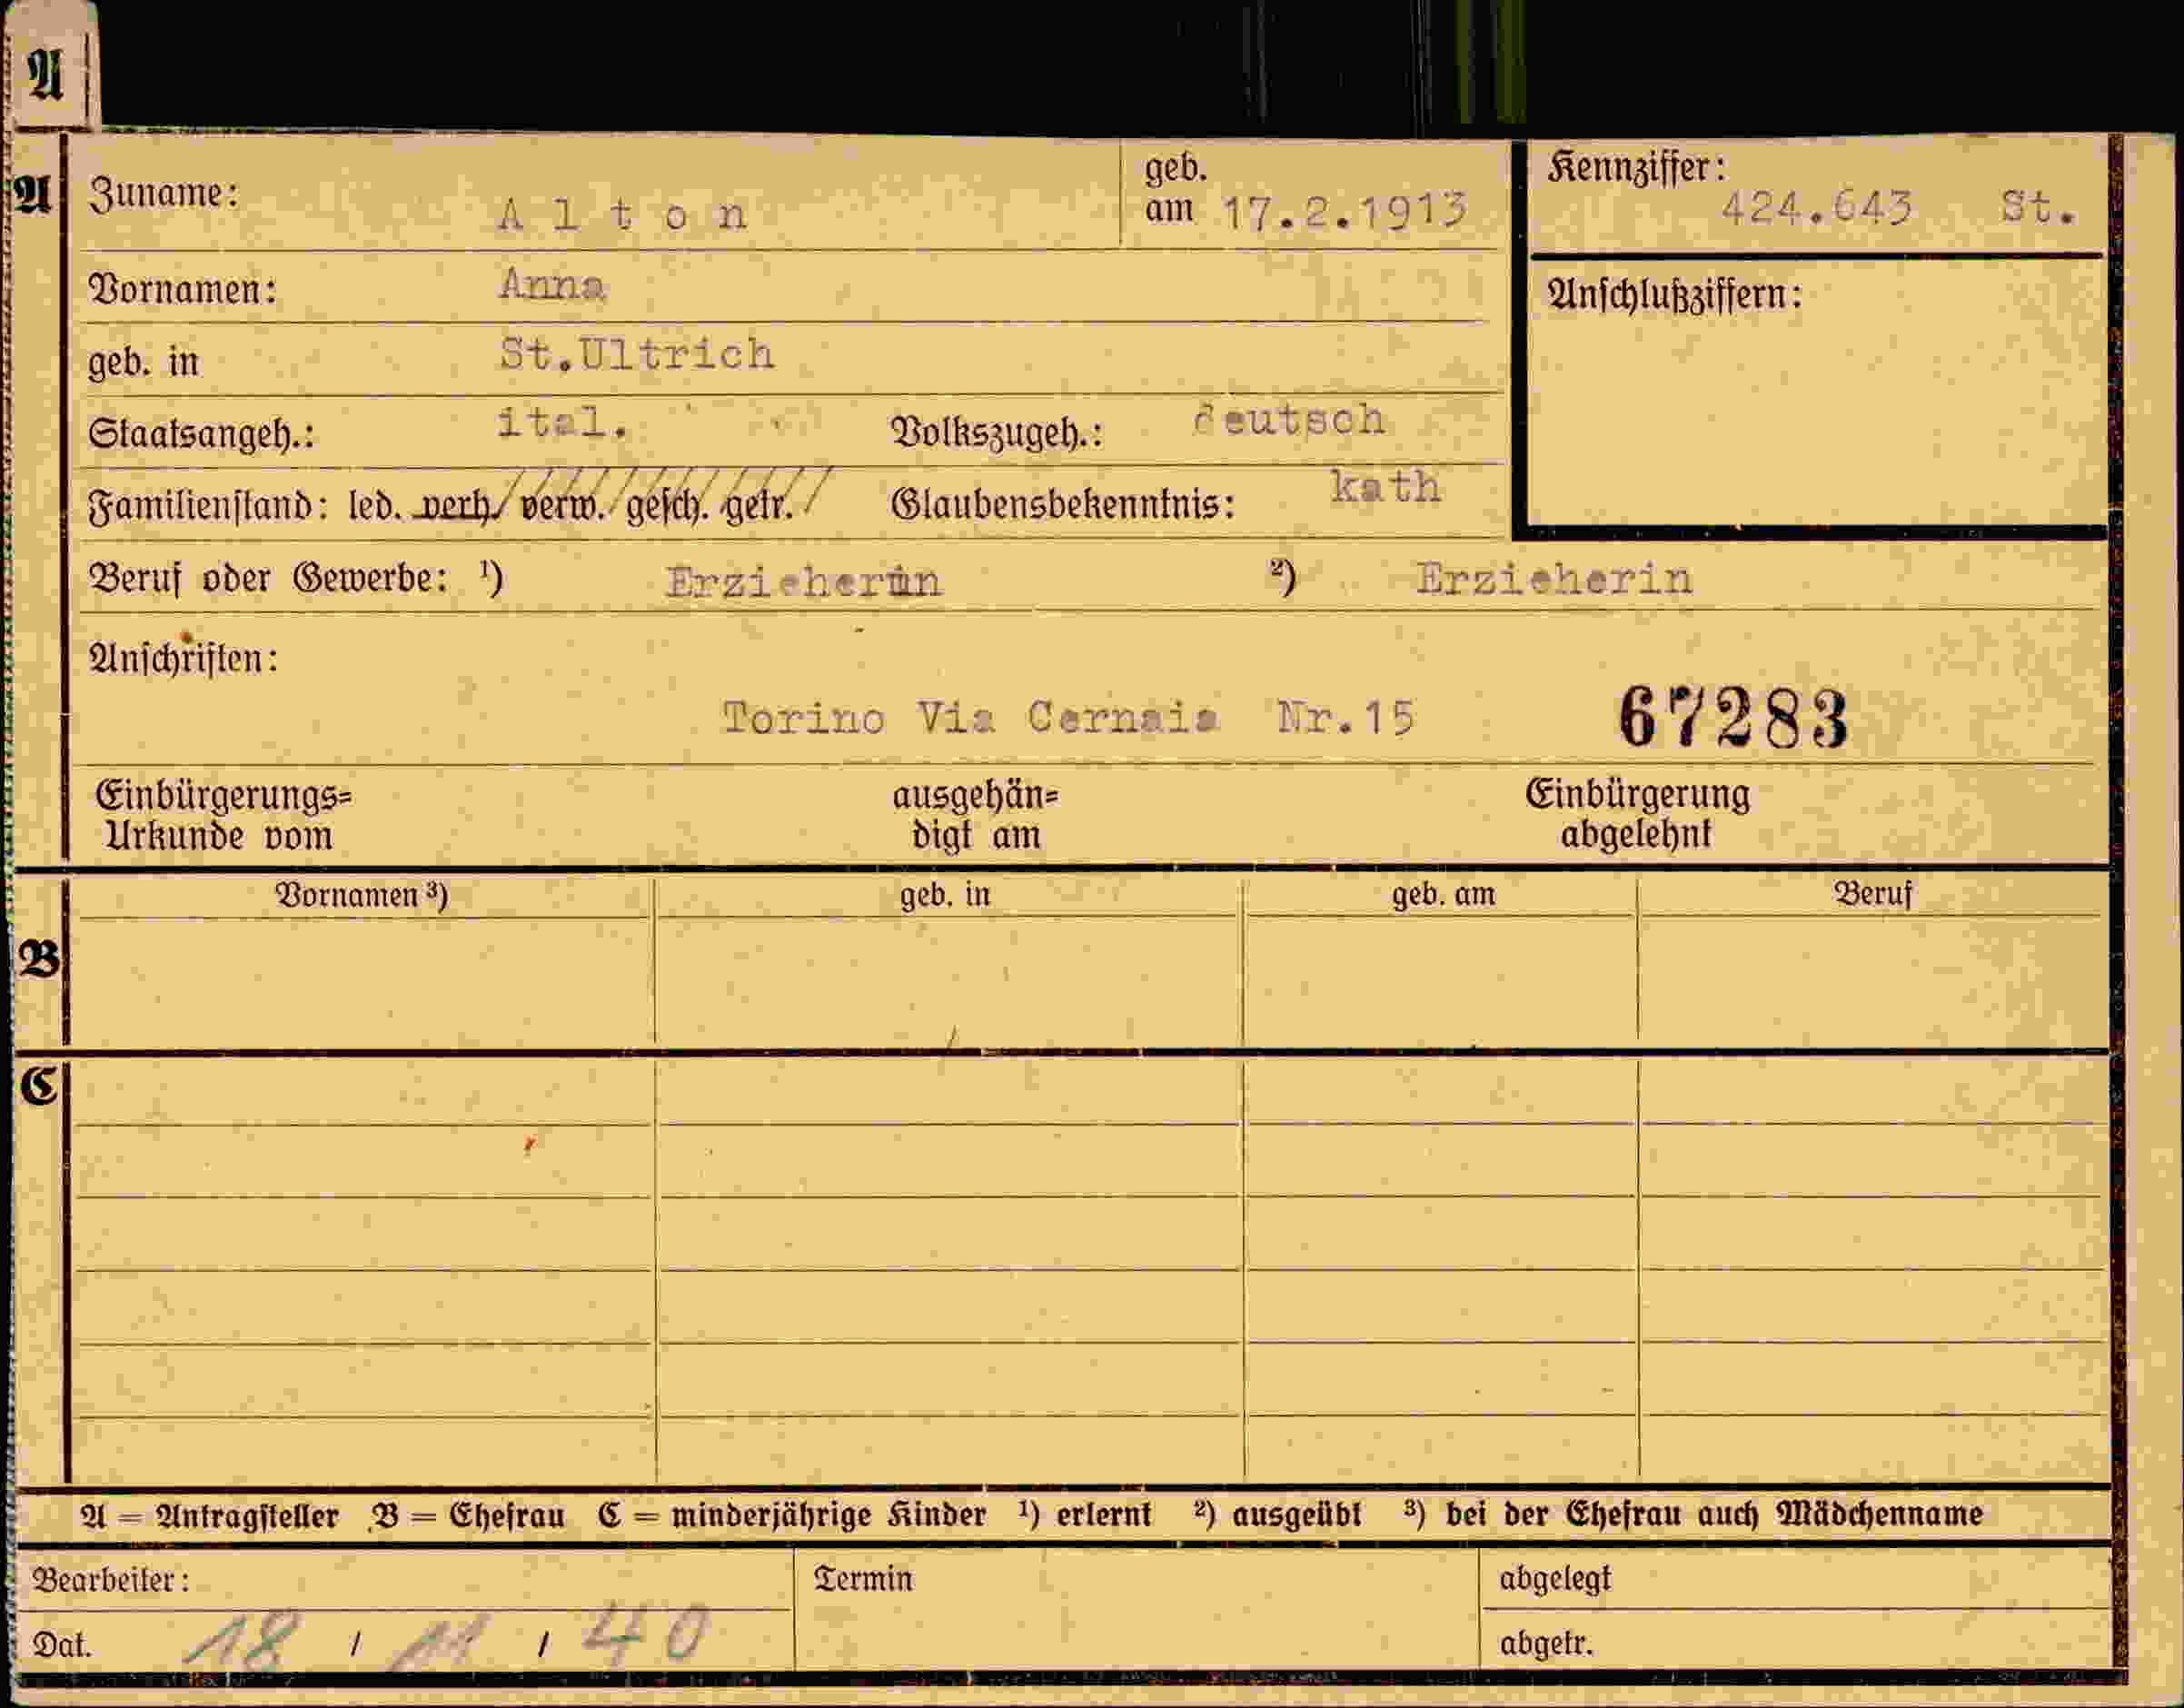 A
A
Zuname: Alton geb. am 17.2.1913 Kennziffer: 424.643 St.
Vornamen: Anna Anschlußziffern:
geb. in St.Ultrich
Staatsangeh.: ital. Volkszugeh.: deutsch
Familienstand: led. verh. verw. gesch. getr. Glaubensbekenntnis: kath
Beruf oder Gewerbe: ¹) Erzieherin ²) Erzieherin
Anschriften:
Torino Via Cernaia Nr.15 67283
Einbürgerungs= ausgehän= Einbürgerung
Urkunde vom digt am abgelehnt
Vornamen ³) geb. in geb. am Beruf
B
C
A = Antragsteller B = Ehefrau C = minderjährige Kinder ¹) erlernt ²) ausgeübt ³) bei der Ehefrau auch Mädchenname
Bearbeiter: Termin abgelegt
Dat. 18 / 11 / 40 abgetr.